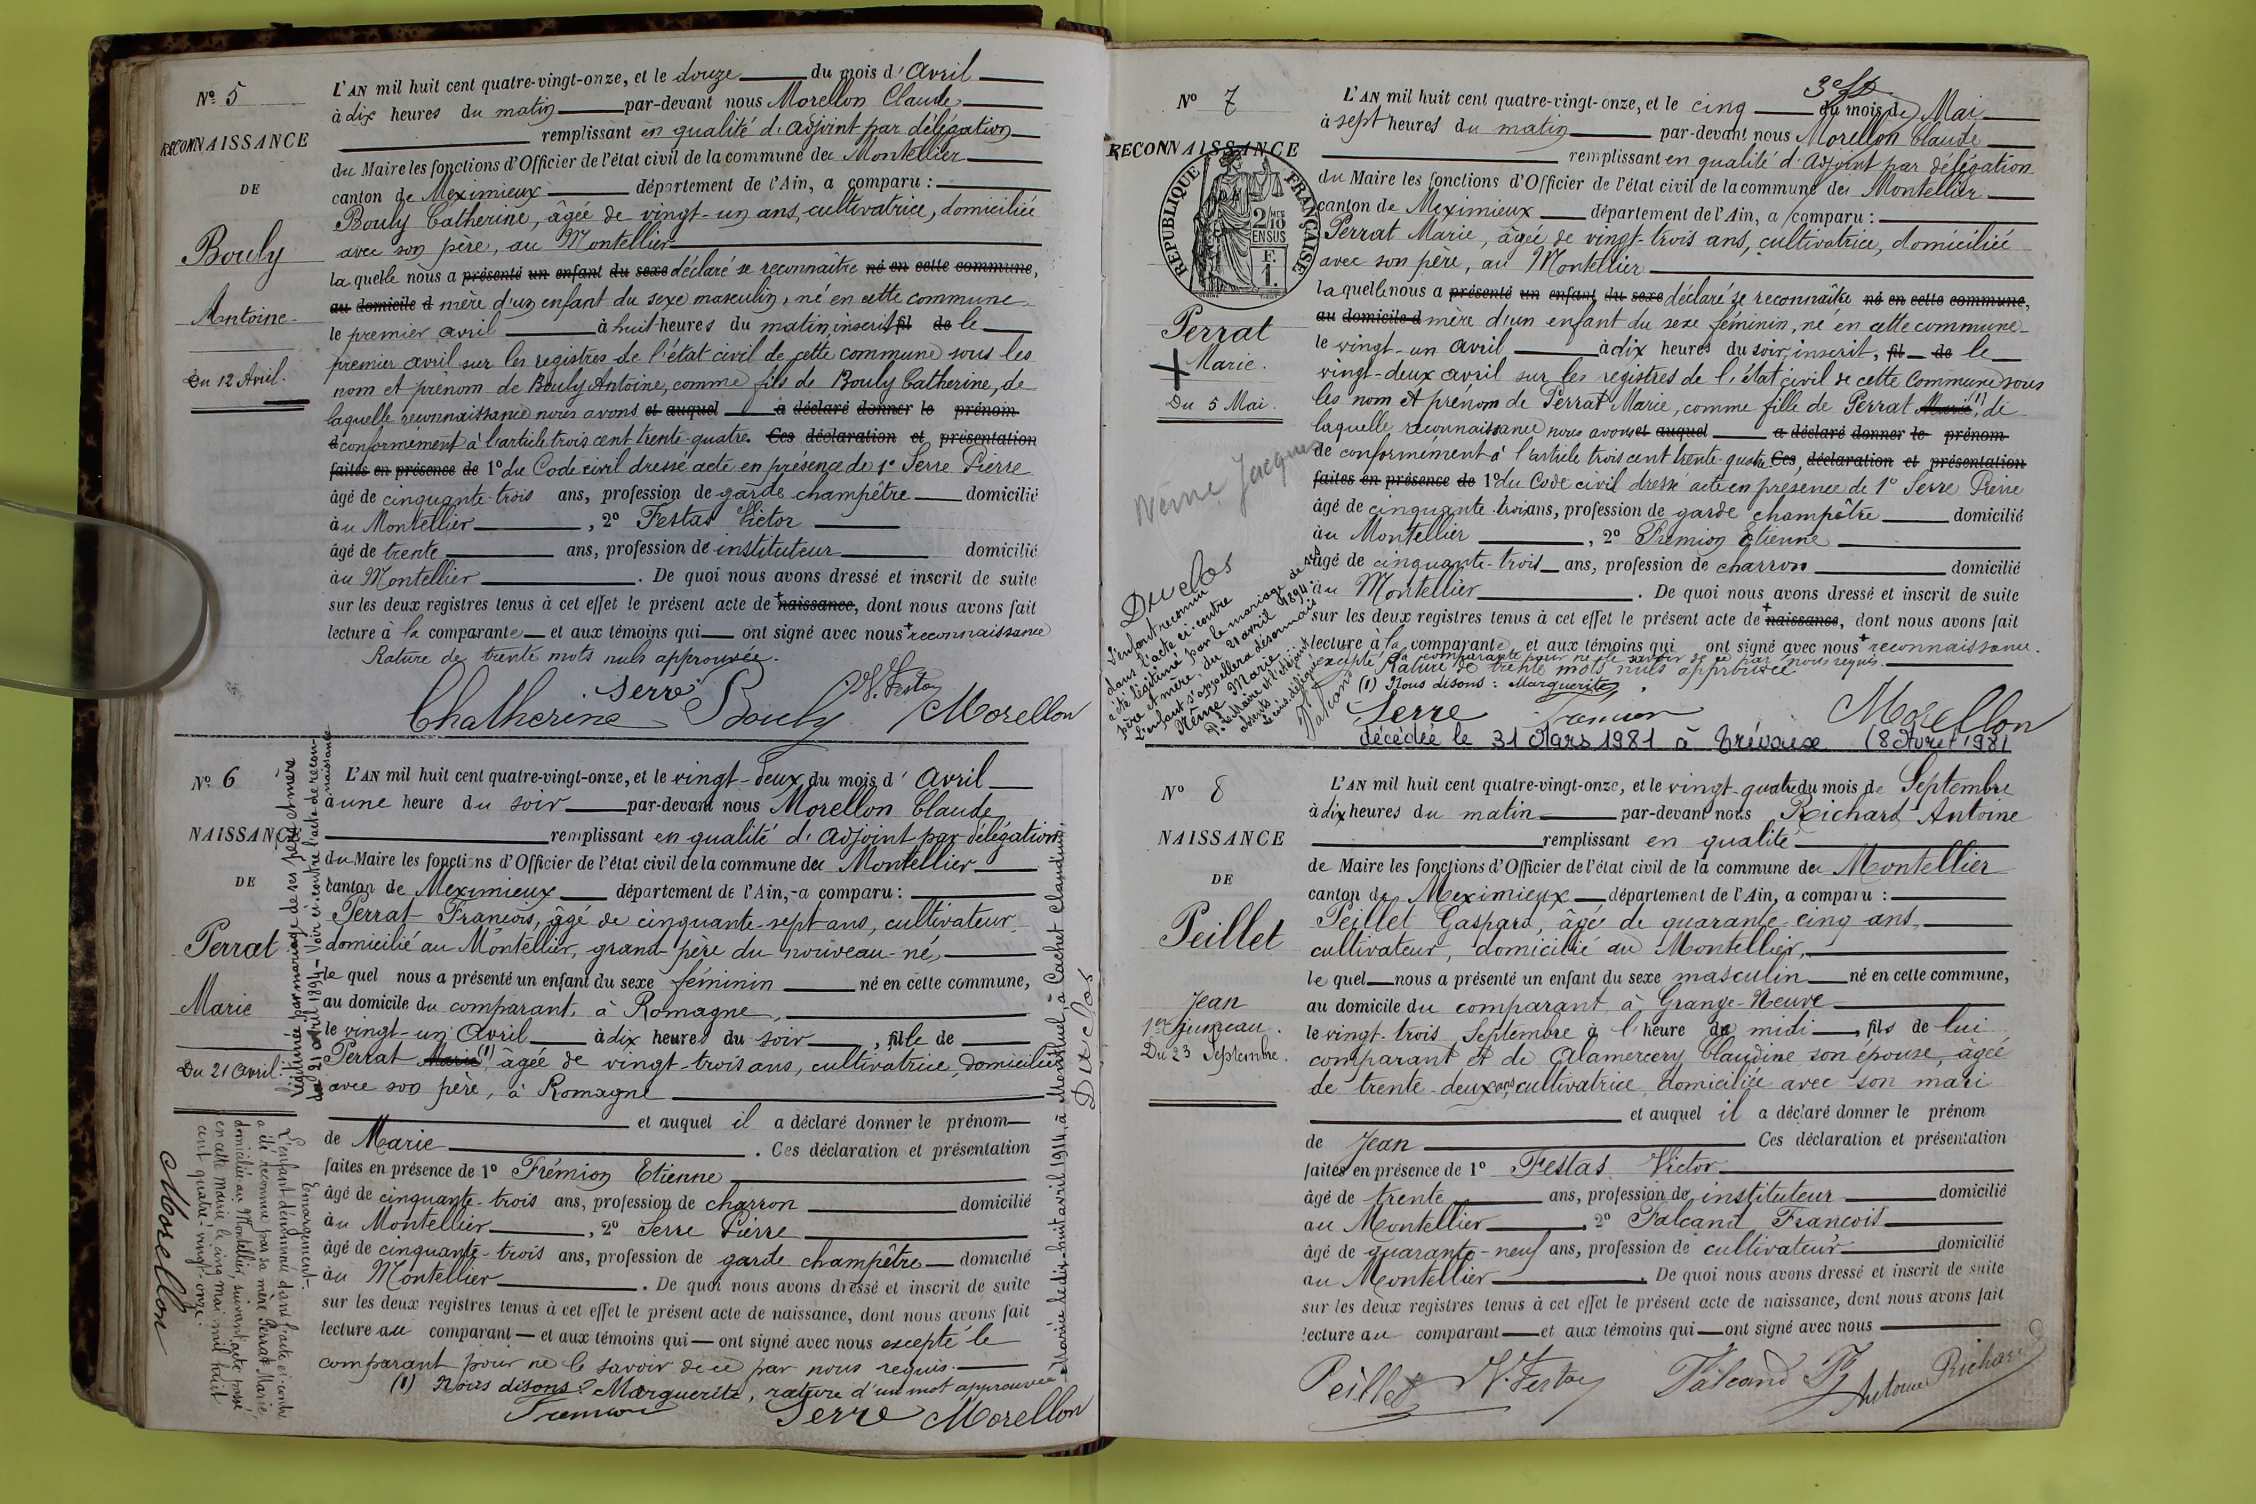 Nº 5
RECONNAISSANCE
DE
Bouly
Antoine
Du 12 Avril.
L'AN mil huit cent quatre-vingt-onze, et le douze du mois d' Avril
à dix heures du matin par-devant nous Morellon Claude
remplissant en qualité d'Adjoint par délégation
du Maire les fonctions d'Officier de l'état civil de la commune de Montellier
canton de Meximieux département de l'Ain, a comparu :
Bouly Catherine, âgée de vingt-un ans, cultivatrice, domiciliée
avec son père, au Montellier
la quelle nous a présenté un enfant du sexe déclaré se reconnaître né en cette commune,
au domicile d mère d'un enfant du sexe masculin, né en cette commune
le premier avril à huit heures du matin, inscrit fil de le
premier avril sur les registres de l'état civil de cette commune sous les
nom et prénom de Bouly Antoine, comme fils de Bouly Catherine, de
laquelle reconnaissance nous avons et auquel a déclaré donner le prénom
d conformément à l'article trois cent trente-quatre. Ces déclaration et présentation
faites en présence de 1º du Code civil dressé acte en présence de 1º Serre Pierre
âgé de cinquante-trois ans, profession de garde champêtre domicilié
au Montellier , 2º Festas Victor
âgé de trente ans, profession de instituteur domicilié
au Montellier . De quoi nous avons dressé et inscrit de suite
sur les deux registres tenus à cet effet le présent acte de + naissance, dont nous avons fait
lecture à la comparante et aux témoins qui ont signé avec nous + reconnaissance
Rature de trente mots nuls approuvée.
Serre V. Festas
Chatherine Bouly Morellon
Nº 6
NAISSANCE
DE
Perrat
Marie
Du 21 Avril.
Légitimée par mariage de ses père et mère
du 21 avril 1894 - Voir ci-contre l'acte de reconnaissance
L'AN mil huit cent quatre-vingt-onze, et le vingt-deux du mois d' Avril
à une heure du soir par-devant nous Morellon Claude
remplissant en qualité d'Adjoint par délégation
du Maire les fonctions d'Officier de l'état civil de la commune de Montellier
canton de Meximieux département de l'Ain, a comparu :
Perrat François, âgé de cinquante-sept ans, cultivateur,
domicilié au Montellier, grand-père du nouveau-né,
le quel nous a présenté un enfant du sexe féminin né en cette commune,
au domicile du comparant, à Romagne,
le vingt-un Avril à dix heures du soir , fille de
Perrat Marie (1), âgée de vingt-trois ans, cultivatrice, domiciliée
avec son père, à Romagne
et auquel il a déclaré donner le prénom
de Marie . Ces déclaration et présentation
faites en présence de 1º Frémion Etienne
âgé de cinquante-trois ans, profession de charron domicilié
au Montellier , 2º Serre Pierre
âgé de cinquante-trois ans, profession de garde champêtre domicilié
au Montellier . De quoi nous avons dressé et inscrit de suite
sur les deux registres tenus à cet effet le présent acte de naissance, dont nous avons fait
lecture au comparant et aux témoins qui ont signé avec nous excepté le
comparant pour ne le savoir de ce par nous requis.
(1) Nous disons : Marguerite, rature d'un mot approuvée
Fremion Serre Morellon
Emargement.
L'enfant dénommé dans l'acte ci-contre
a été reconnue par sa mère Perrat Marie,
domiciliée au Montellier, suivant acte passé
en cette mairie le cinq mai mil huit
cent quatre-vingt-onze.
Morellon
Mariée le dix-huit avril 1914, à Montluel, à Cachet Claudius
Duclos
Nº 7
RECONNAISSANCE
RÉPUBLIQUE FRANÇAISE
2/10
EN SUS
F.
1.
Perrat
Marie.
Du 5 Mai.
Nême Jacques
Duclos
L'enfant reconnu
dans l'acte ci-contre
a été légitimé par le mariage de ses
père et mère, du 21 avril 1894.
L'enfant s'appellera désormais
Nême Marie
Falcand
L'AN mil huit cent quatre-vingt-onze, et le cinq du mois de Mai
à sept heures du matin par-devant nous Morellon Claude
remplissant en qualité d'Adjoint par délégation
du Maire les fonctions d'Officier de l'état civil de la commune de Montellier
canton de Meximieux département de l'Ain, a comparu :
Perrat Marie, âgée de vingt-trois ans, cultivatrice, domiciliée
avec son père, au Montellier
la quelle nous a présenté un enfant du sexe déclaré se reconnaître né en cette commune,
au domicile d mère d'un enfant du sexe féminin, né en cette commune
le vingt-un Avril à dix heures du soir, inscrit, fil de le
vingt-deux avril sur les registres de l'état civil de cette Commune sous
les nom et prénom de Perrat Marie, comme fille de Perrat Marie (1), de
laquelle reconnaissance nous avons et auquel a déclaré donner le prénom
de conformément à l'article trois cent trente-quatre Ces déclaration et présentation
faites en présence de 1º du Code civil dressé acte en présence de 1º Serre Pierre
âgé de cinquante-trois ans, profession de garde champêtre domicilié
au Montellier , 2º Frémion Etienne
âgé de cinquante-trois ans, profession de charron domicilié
au Montellier . De quoi nous avons dressé et inscrit de suite
sur les deux registres tenus à cet effet le présent acte de + naissance, dont nous avons fait
lecture à la comparante et aux témoins qui ont signé avec nous + reconnaissance.
excepté la comparante pour ne le savoir de ce par nous requis.
Rature de trente mots nuls approuvée
(1) Nous disons : Marguerite.
Serre Fremion Morellon
décédée le 31 Mars 1981 à Trévoux (8 Avril 1981
Nº 8
NAISSANCE
DE
Peillet
Jean
1er jumeau.
Du 23 Septembre.
L'AN mil huit cent quatre-vingt-onze, et le vingt-quatre du mois de Septembre
à dix heures du matin par-devant nous Richard Antoine
remplissant en qualité
de Maire les fonctions d'Officier de l'état civil de la commune de Montellier
canton de Meximieux département de l'Ain, a comparu :
Peillet Gaspard, âgé de quarante-cinq ans,
cultivateur, domicilié au Montellier,
le quel nous a présenté un enfant du sexe masculin né en cette commune,
au domicile du comparant à Grange-Neuve
le vingt-trois Septembre à l'heure de midi , fils de lui
comparant et de Alamercery Claudine son épouse, âgée
de trente-deux ans, cultivatrice, domiciliée avec son mari
et auquel il a déclaré donner le prénom
de Jean Ces déclaration et présentation
faites en présence de 1º Festas Victor
âgé de trente ans, profession de instituteur domicilié
au Montellier , 2º Falcand François
âgé de quarante-neuf ans, profession de cultivateur domicilié
au Montellier . De quoi nous avons dressé et inscrit de suite
sur les deux registres tenus à cet effet le présent acte de naissance, dont nous avons fait
lecture au comparant et aux témoins qui ont signé avec nous
Peillet V. Festas Falcand F Antoine Richard